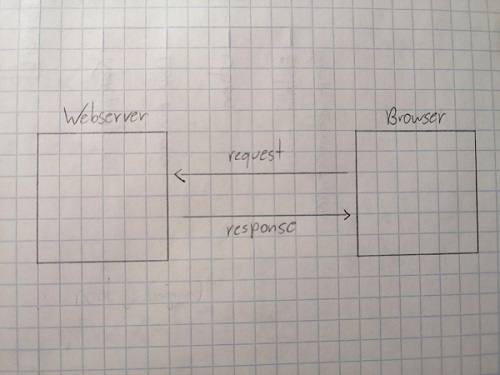 Webserver
Browser
request
response